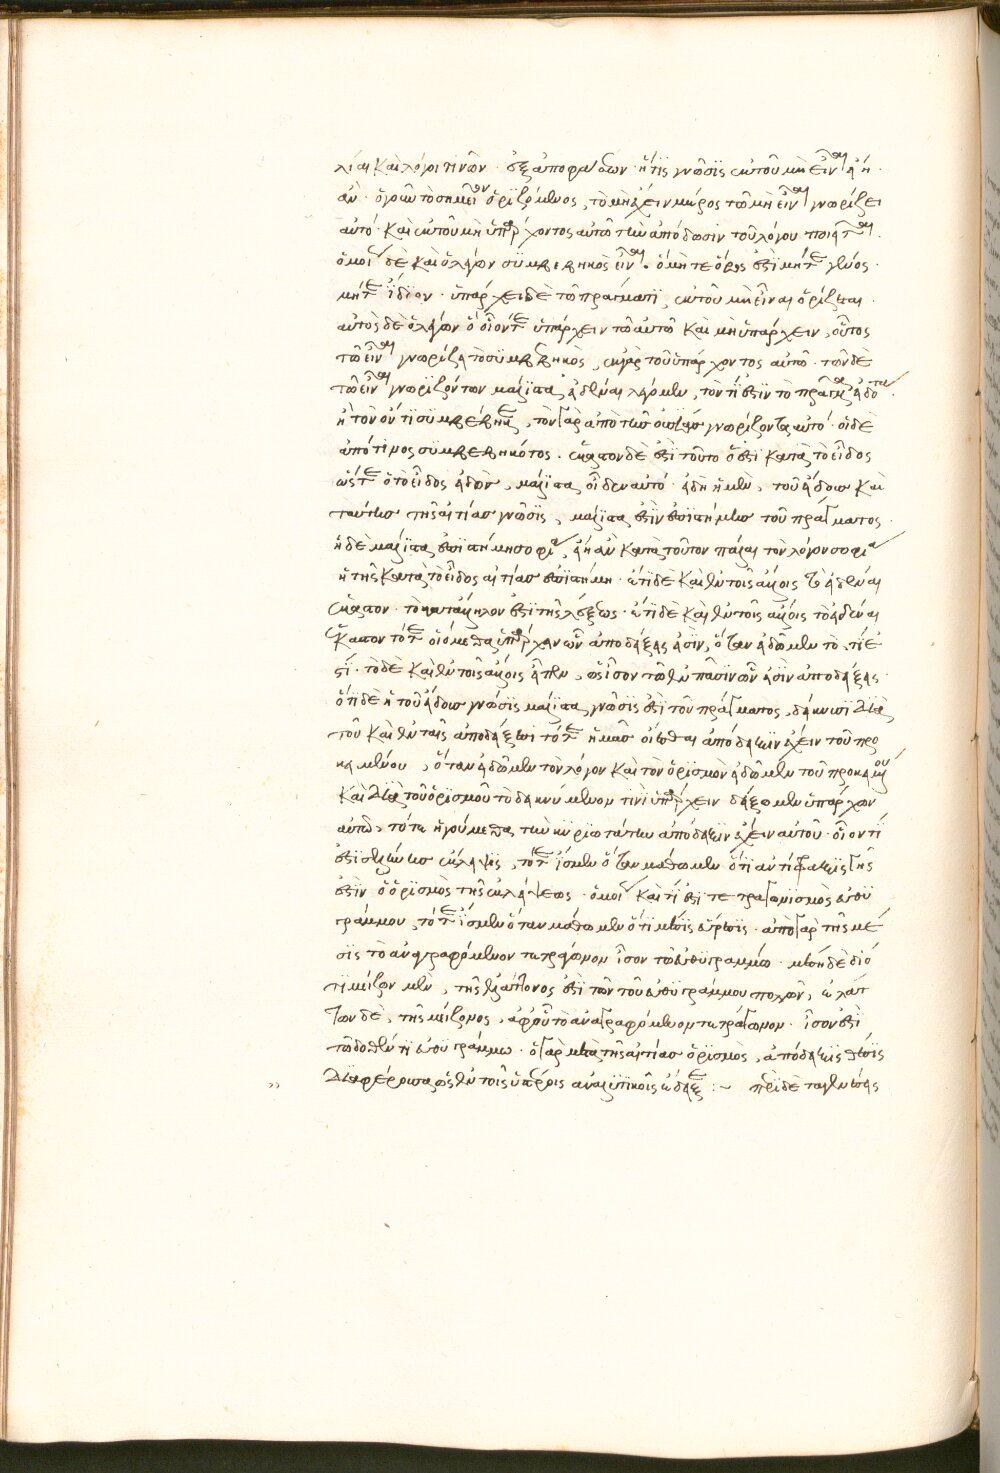 λίαι καὶ λόγοι τινῶν · ἐξ ἀποφάσεων · ἥτις γνῶσις ἐκ τοῦ μὴ εἶναι εἴη
ἄν · ὁ γὰρ τὸ σημεῖον ὁριζόμενος, τὸ μὴ ἔχειν μέρος τῶ μὴ εἶναι γνωρίζει
αὐτό · καὶ ἐκ τοῦ μὴ ὑπάρχοντος αὐτῶ τὴν ἀπόδοσιν τοῦ λόγου ποιεῖται ·
ὁμοίως δὲ καὶ ὁ λέγων συμβεβηκὸς εἶναι · ὃ μήτε ὅρος ἐστὶ μήτε γένος ·
μήτε ἴδιον · ὑπάρχει δὲ τῶ πράγματι, ἐκ τοῦ μὴ εἶναι ὁρίζεται ·
αὐτὸς δὲ ὁ λέγων ὃ οἷόν τε ὑπάρχειν τῶ αὐτῶ καὶ μὴ ὑπάρχειν, οὗτος
τῶ εἶναι γνωρίζει τὸ συμβεβηκὸς, ἐκ γὰρ τοῦ ὑπάρχοντος αὐτῶ · τῶν δὲ
τῶ εἶναι γνωριζόντων μάλιστα εἰδέναι λέγομεν, τὸν τί ἐστιν τὸ πρᾶγμα εἰδότα
ἢ τὸν ὅν τι συμβέβηκε, τὸν γὰρ ἀπὸ τῆς οὐσίας γνωρίζοντα αὐτό · οἱ δὲ
ἀπό τινος συμβεβηκότος · ἕκαστον δέ ἐστι τοῦτο ὅ ἐστι κατὰ τὸ εἶδος
ὥστε ὁ τὸ εἶδος εἰδὼς, μάλιστα οἶδεν αὐτό · εἰ δὴ ἡ μὲν, τοῦ εἴδους καὶ
ταύτης τῆς αἰτίας γνῶσις, μάλιστά ἐστιν ἐπιστήμης τοῦ πράγματος ·
ἡ δὲ μάλιστα ἐπιστήμη σοφία, εἴη ἂν κατὰ τοῦτον πάλαι τὸν λόγον σοφία
ἡ τῆς κατὰ τὸ εἶδος αἰτίας ἐπιστήμη · ἔτι δὲ καὶ ἐν τοῖς ἄλλοις τὸ εἰδέναι
ἕκαστον · τὸ κατάλληλον ἐστὶ τῆς λέξεως · ἔτι δὲ καὶ ἐν τοῖς ἄλλοις τὸ εἰδέναι
ἕκαστον τότε οἰόμεθα ὑπάρχειν ὧν ἀποδείξεις εἰσὶν, ὅταν εἰδῶμεν τὸ, τί ἐ
στι · τὸ δὲ καὶ ἐν τοῖς ἄλλοις εἶπεν, ὡς ἴσον τῶ ἐν πᾶσιν ὧν εἰσὶν ἀποδείξεις ·
ὅτι δὲ ἡ τοῦ εἴδους γνῶσις μάλιστα γνῶσις ἐστὶ τοῦ πράγματος, δείκνυσι διὰ
τοῦ καὶ ἐν ταῖς ἀποδείξεσι τότε ἡμᾶς οἴεσθαι ἀπόδειξιν ἔχειν τοῦ προ
κειμένου, ὅταν εἰδῶμεν τὸν λόγον καὶ τὸν ὁρισμὸν εἰδῶμεν τοῦ προκειμένου
καὶ διὰ τοῦ ὁρισμοῦ τὸ δεικνύμενον τινὶ ὑπάρχειν δείξωμεν ὑπάρχον
αὐτῶ, τότε ἡγούμεθα τὴν κυριωτάτην ἀπόδειξιν ἔχειν αὐτοῦ · οἷον τί
ἐστι σελήνης ἔκλειψις, τότε ἴσμεν ὅταν μάθωμεν ὅτι ἀντίφραξις γῆς
ἐστὶν ὁ ὁρισμὸς τῆς ἐκλείψεως · ὁμοίως καὶ τί ἐστι τετραγωνισμὸς εὐθυ
γράμμου, τότε ἴσμεν ὅταν μάθωμεν ὅτι μέσης εὕρεσις · ἀπὸ γὰρ τῆς μέ
σης τὸ ἀναγραφόμενον τετράγωνον ἴσον τῶ εὐθυγράμμω · μέση δὲ διό
τι μείζων μὲν, τῆς ἐλάττονος ἐστὶ τῶν τοῦ εὐθυγράμμου πλευρῶν, ἐλάτ
των δὲ, τῆς μείζονος, ἀφ' οὗ τὸ ἀναγραφόμενον τετράγωνον · ἴσον ἐστὶ
τῶ δοθέντι εὐθυγράμμω · ὁ γὰρ μετὰ τῆς αἰτίας ὁρισμὸς, ἀπόδειξις θέσει
διαφέρουσα ὡς ἐν τοῖς ὑστέροις ἀναλυτικοῖς ἔδειξε :~ περὶ δὲ τὰς γενέσεις